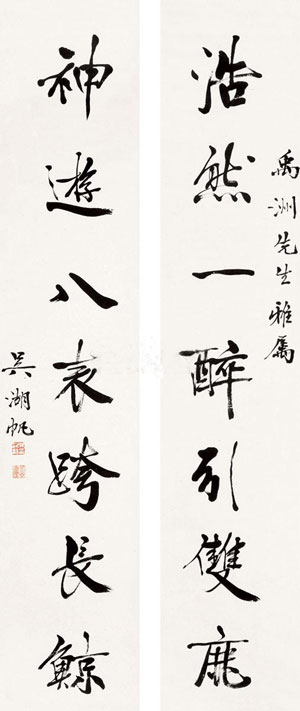 禹洲先生雅屬
浩然一醉引雙鹿
神遊八表跨長鯨
吳湖帆